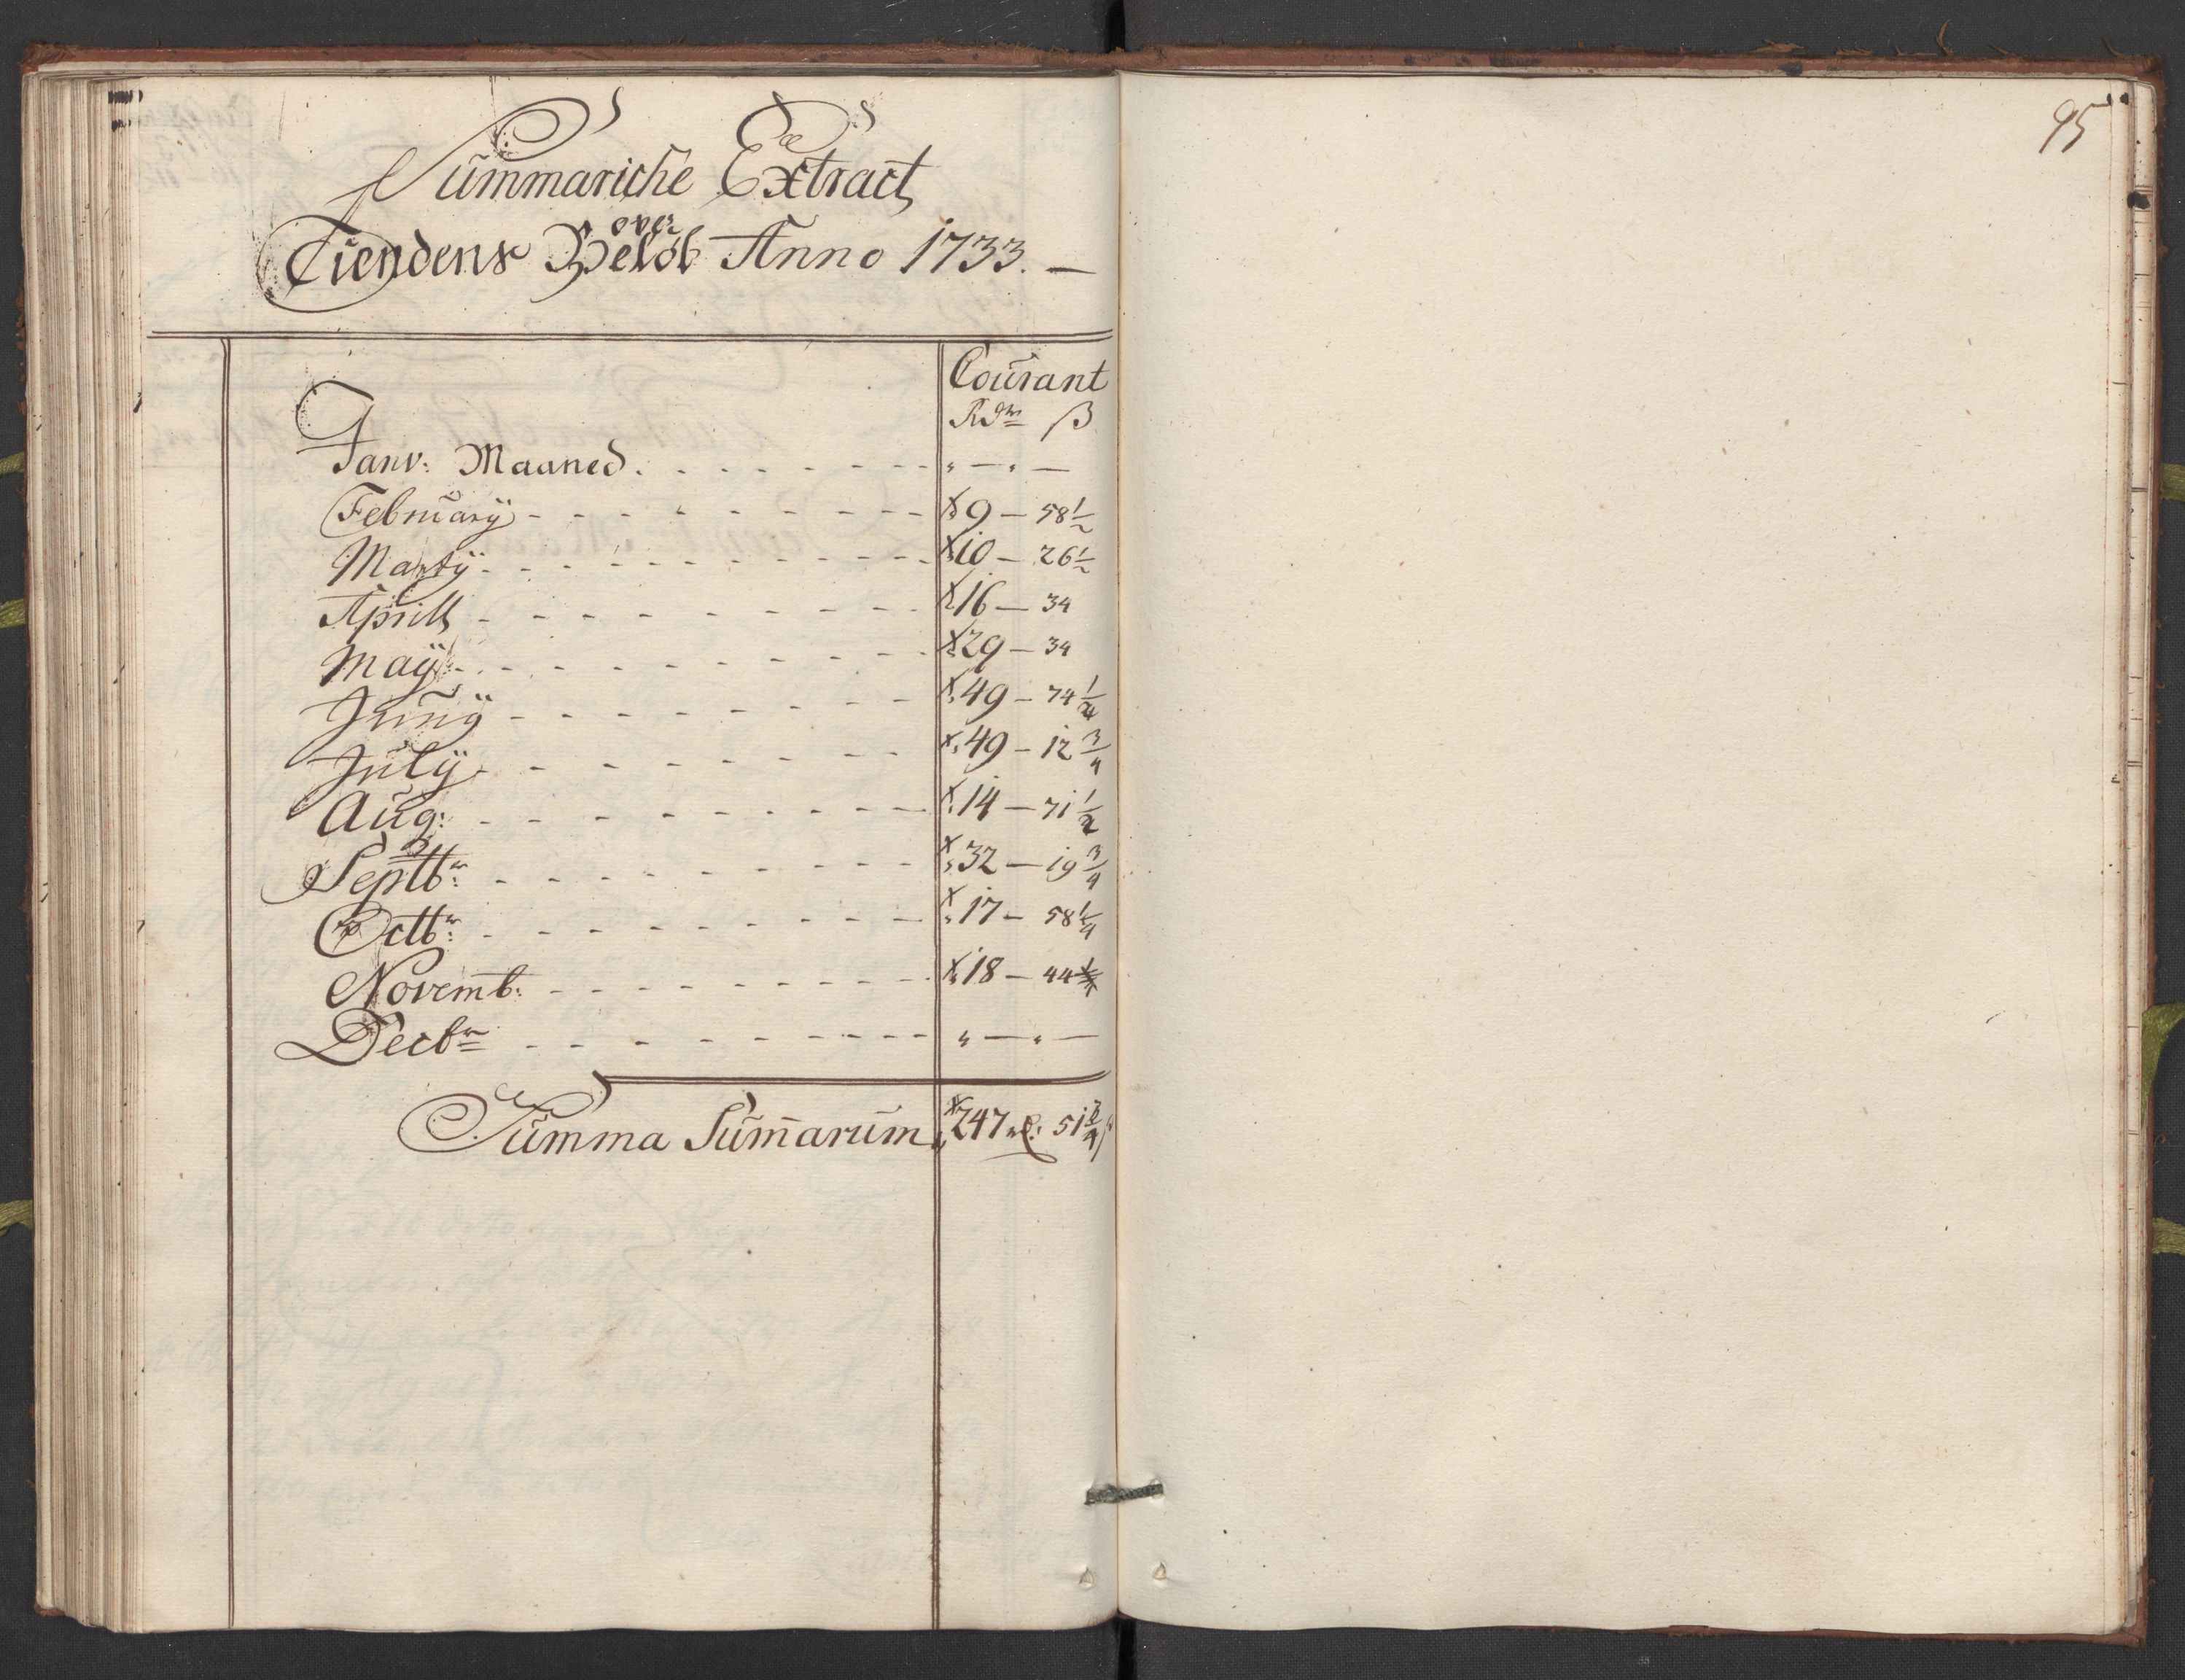 95
Summariche Extract
over
Tiendens Beløb Anno 1733. —
Courant
Rdr ß
Janv: Maaned. " — " —
February 9 — 58 1/2
Marty 10 — 26 1/2
Aprill 16 — 34
Maÿ 29 — 34
Junÿ 49 — 74 1/4
Julÿ 49 — 12 3/4
Aug: 14 — 71 1/2
Septbr: 32 — 19 3/4
Octbr: 17 — 58 1/4
Novemb: 18 — 44
Decbr " — " —
Summa Sum̄arum 247 rd: 51 3/4 ß